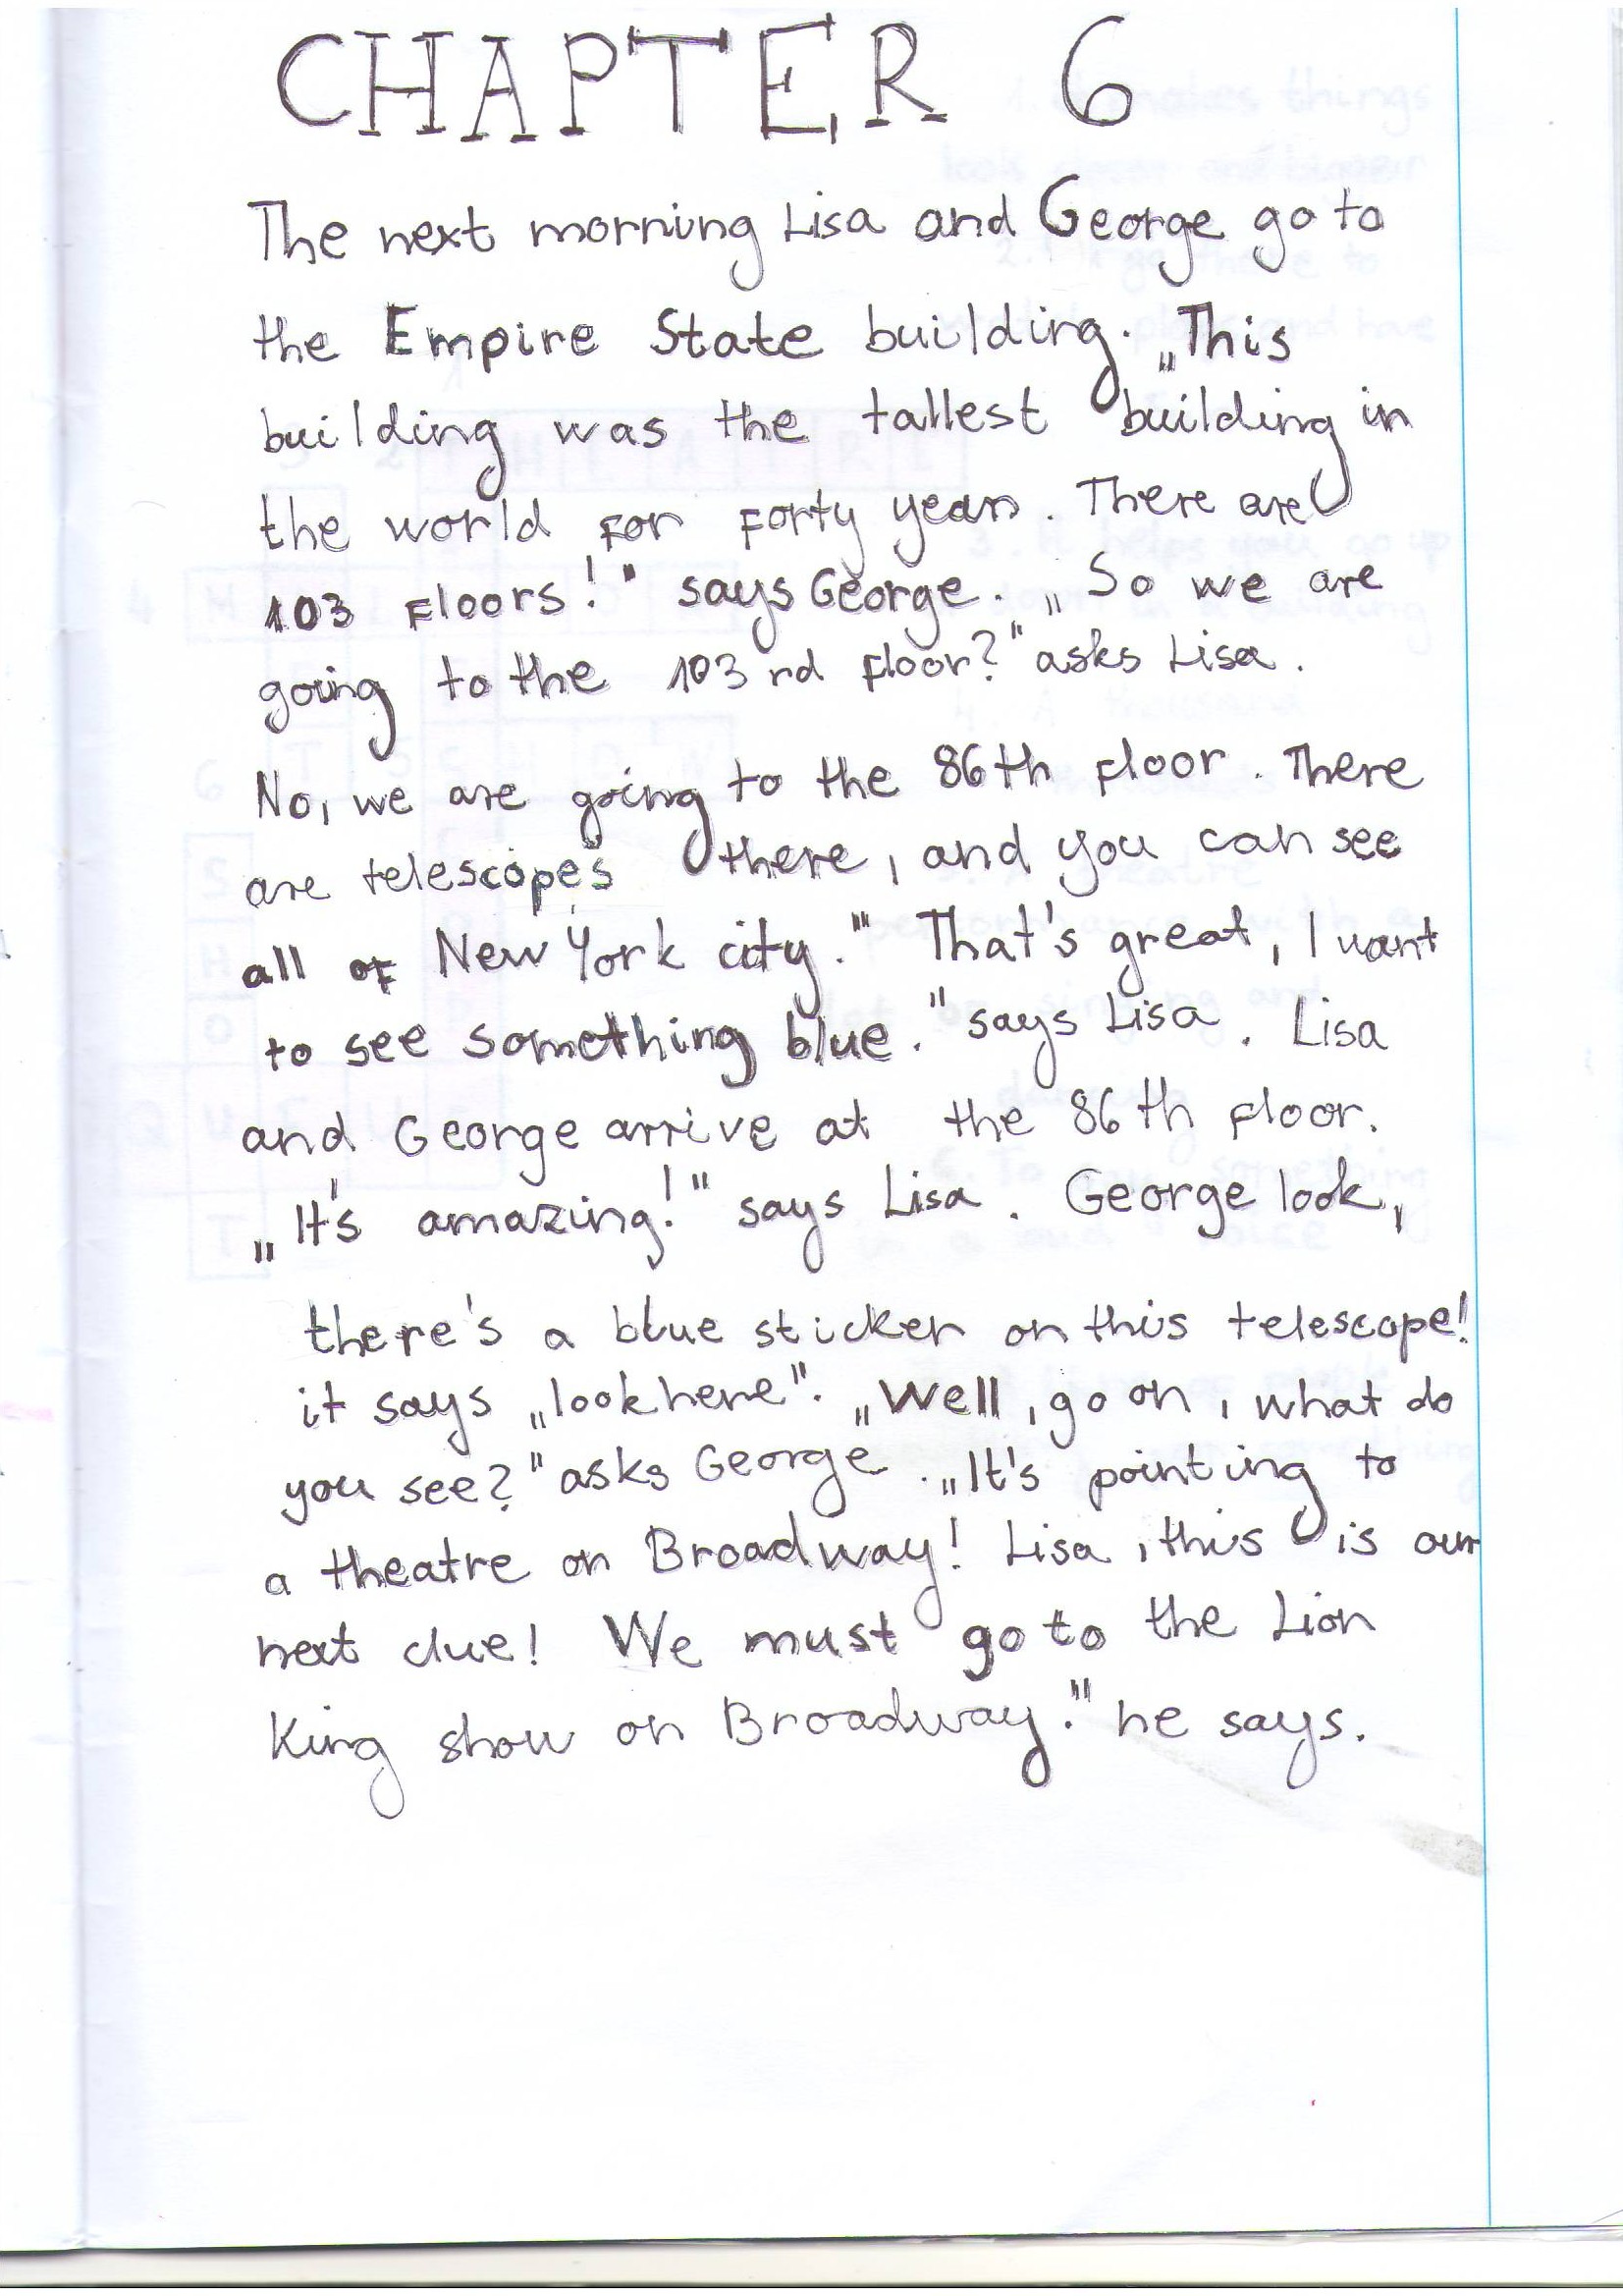 CHAPTER 6
The next morning Lisa and George go to
the Empire State building. „This
building was the tallest building in
the world for forty years. There are
103 floors!" says George. „So we are
going to the 103 rd floor?" asks Lisa.
No, we are going to the 86th floor. There
are telescopes there, and you can see
all of New York city." "That's great, I want
to see something blue." says Lisa. Lisa
and George arrive at the 86th floor.
„It's amazing!" says Lisa. George look,
there's a blue sticker on this telescope!
it says „look here". „Well, go on, what do
you see?" asks George. „It's pointing to
a theatre on Broadway! Lisa, this is our
next clue! We must go to the Lion
King show on Broadway." he says.